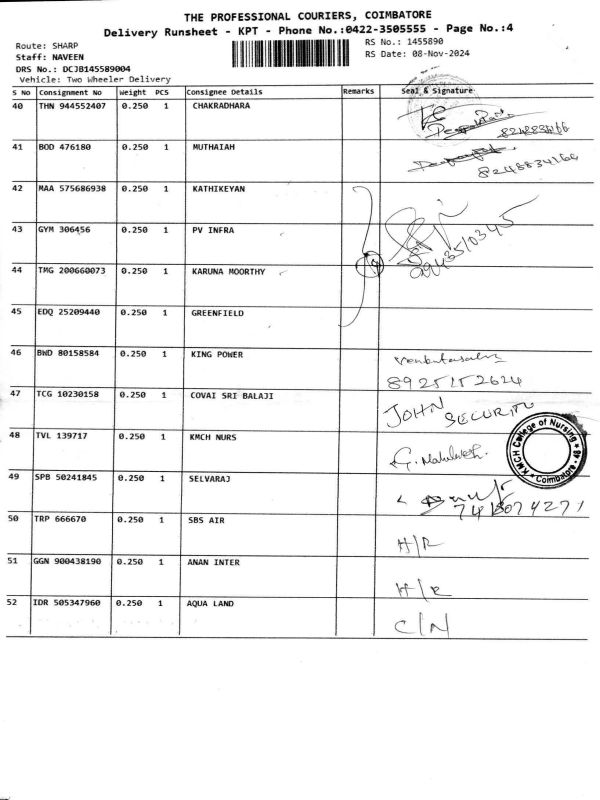 THE PROFESSIONAL COURIERS, COIMBATORE
Delivery Runsheet - KPT - Phone No.:0422-3505555 - Page No.:4
Route: SHARP
RS No.: 1455890
Staff: NAVEEN
RS Date: 08-Nov-2024
DRS No.: DCJB145589004
Vehicle: Two Wheeler Delivery
S No Consignment No Weight PCS Consignee Details Remarks Seal & Signature
40 THN 944552407 0.250 1 CHAKRADHARA
8248834166
41 BOD 476180 0.250 1 MUTHAIAH
8248834166
42 MAA 575686938 0.250 1 KATHIKEYAN
43 GYM 306456 0.250 1 PV INFRA
44 TMG 200660073 0.250 1 KARUNA MOORTHY
45 EDQ 25209440 0.250 1 GREENFIELD
46 BWD 80158584 0.250 1 KING POWER
8925152624
47 TCG 10230158 0.250 1 COVAI SRI BALAJI JOHN SECURITY
48 TVL 139717 0.250 1 KMCH NURS
KMCH College of Nursing * Coimbatore *
49 SPB 50241845 0.250 1 SELVARAJ
50 TRP 666670 0.250 1 SBS AIR H/R
51 GGN 900438190 0.250 1 ANAN INTER H/R
52 IDR 505347960 0.250 1 AQUA LAND C/N